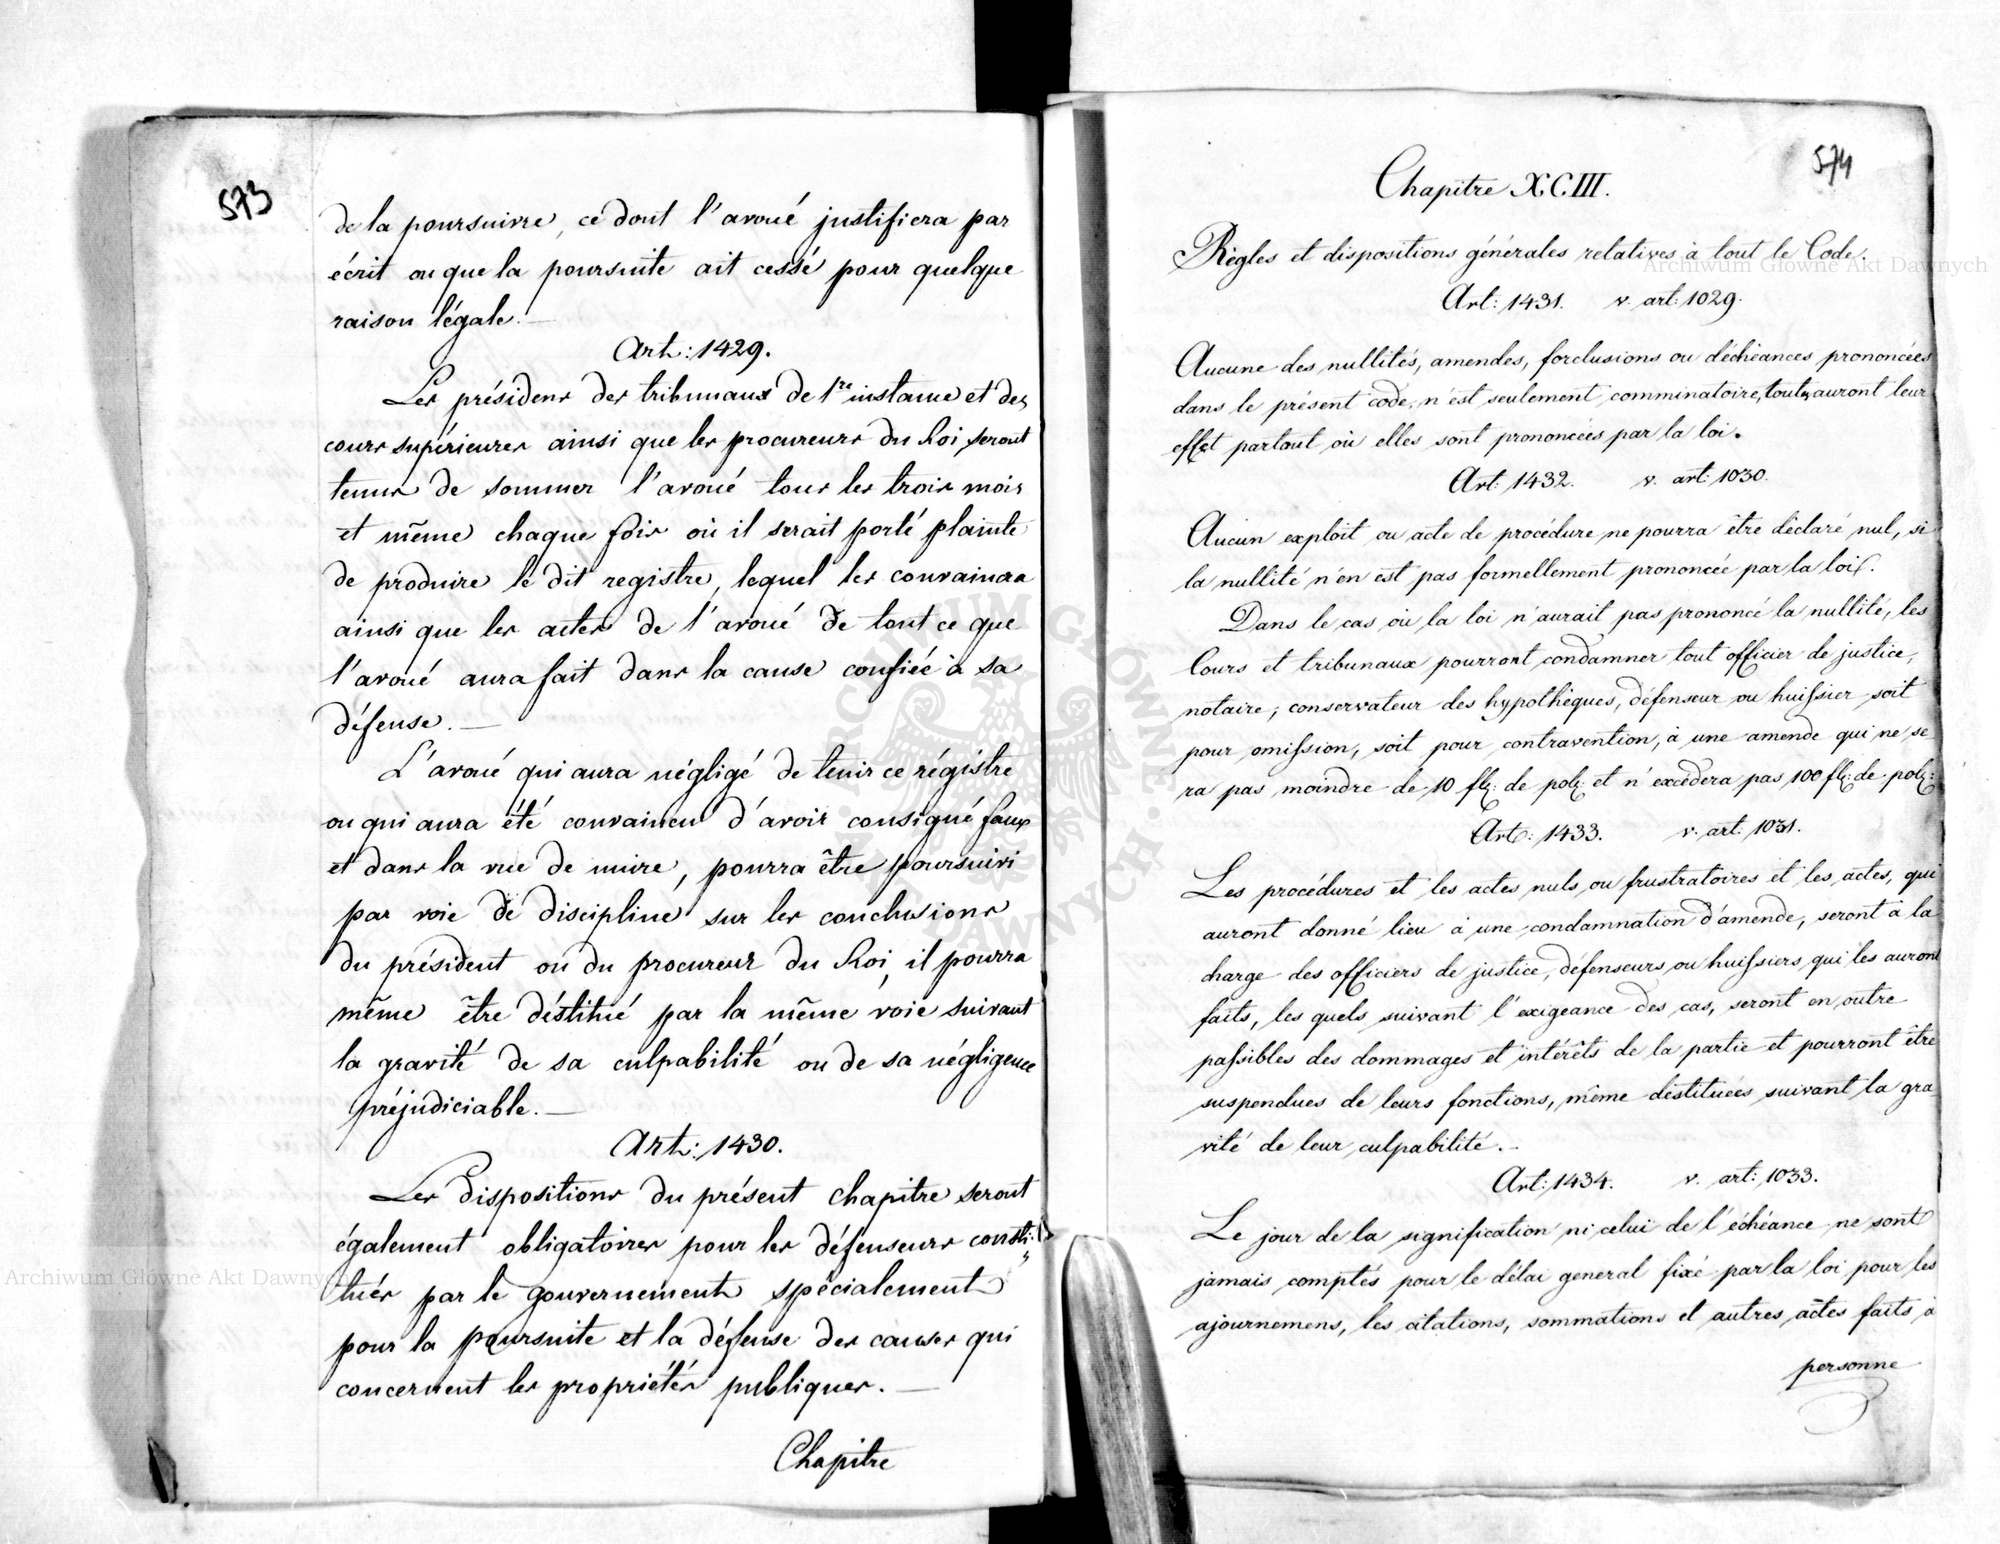 573
de la poursuivre, ce dont l'avoué justifiera par
écrit ou que la poursuite ait cessé pour quelque
raison légale. —
Art: 1429.
Les présidens des tribunaux de 1re instance et des
cours supérieures ainsi que les procureurs du Roi, seront
tenus de sommer l'avoué tous les trois mois
et même chaque fois où il serait porté plainte
de produire le dit registre, lequel les convaincra
ainsi que les actes de l'avoué de tout ce que
l'avoué aura fait dans la cause confiée à sa
défense. —
L'avoué qui aura négligé de tenir ce régistre
ou qui aura été convaincu d'avoir consigné faux
et dans la vue de nuire, pourra être poursuivi
par voie de discipline sur les conclusions
du président ou du procureur du Roi, il pourra
même être déstitué par la même voie suivant
la gravité de sa culpabilité ou de sa négligence
préjudiciable. —
Art: 1430.
Les dispositions du présent chapitre seront
également obligatoires pour les défenseurs consti:
tués par le gouvernement spécialement
pour la poursuite et la défense des causes qui
concernent les propriétés publiques. —
Chapitre
574
Chapitre XCIII.
Règles et dispositions générales relatives à tout le Code.
Art: 1431. v. art: 1029.
Aucune des nullités, amendes, forclusions ou déchéances prononcées
dans le présent code, n'est seulement comminatoire, toutes auront leur
effet partout où elles sont prononcées par la loi.
Art: 1432. v. art: 1030.
Aucun exploit ou acte de procédure ne pourra être déclaré nul, si
la nullité n'en est pas formellement prononcée par la loi.
Dans le cas où la loi n'aurait pas prononcé la nullité, les
Cours et tribunaux pourront condamner tout officier de justice,
notaire, conservateur des hypothèques, défenseur ou huissier soit
pour omission, soit pour contravention, à une amende qui ne se
ra pas moindre de 10 flr: de pol: et n'excédera pas 100 fl: de pol:
Art: 1433. v. art: 1031.
Les procédures et les actes nuls, ou frustratoires et les actes, qui
auront donné lieu à une condamnation d'amende, seront à la
charge des officiers de justice, défenseurs ou huissiers, qui les auront
faits, les quels suivant l'exigeance des cas, seront en outre
passibles des dommages et intérêts de la partie et pourront être
suspendues de leurs fonctions, même déstituées suivant la gra
vité de leur culpabilité. -
Art: 1434. v. art: 1033.
Le jour de la signification ni celui de l'échéance ne sont
jamais comptés pour le délai general fixé par la loi pour les
ajournemens, les citations, sommations et autres actes faits à
personne
Archiwum Główne Akt Dawnych
Archiwum Główne Akt Dawnych
ARCHIWUM GŁÓWNE AKT DAWNYCH